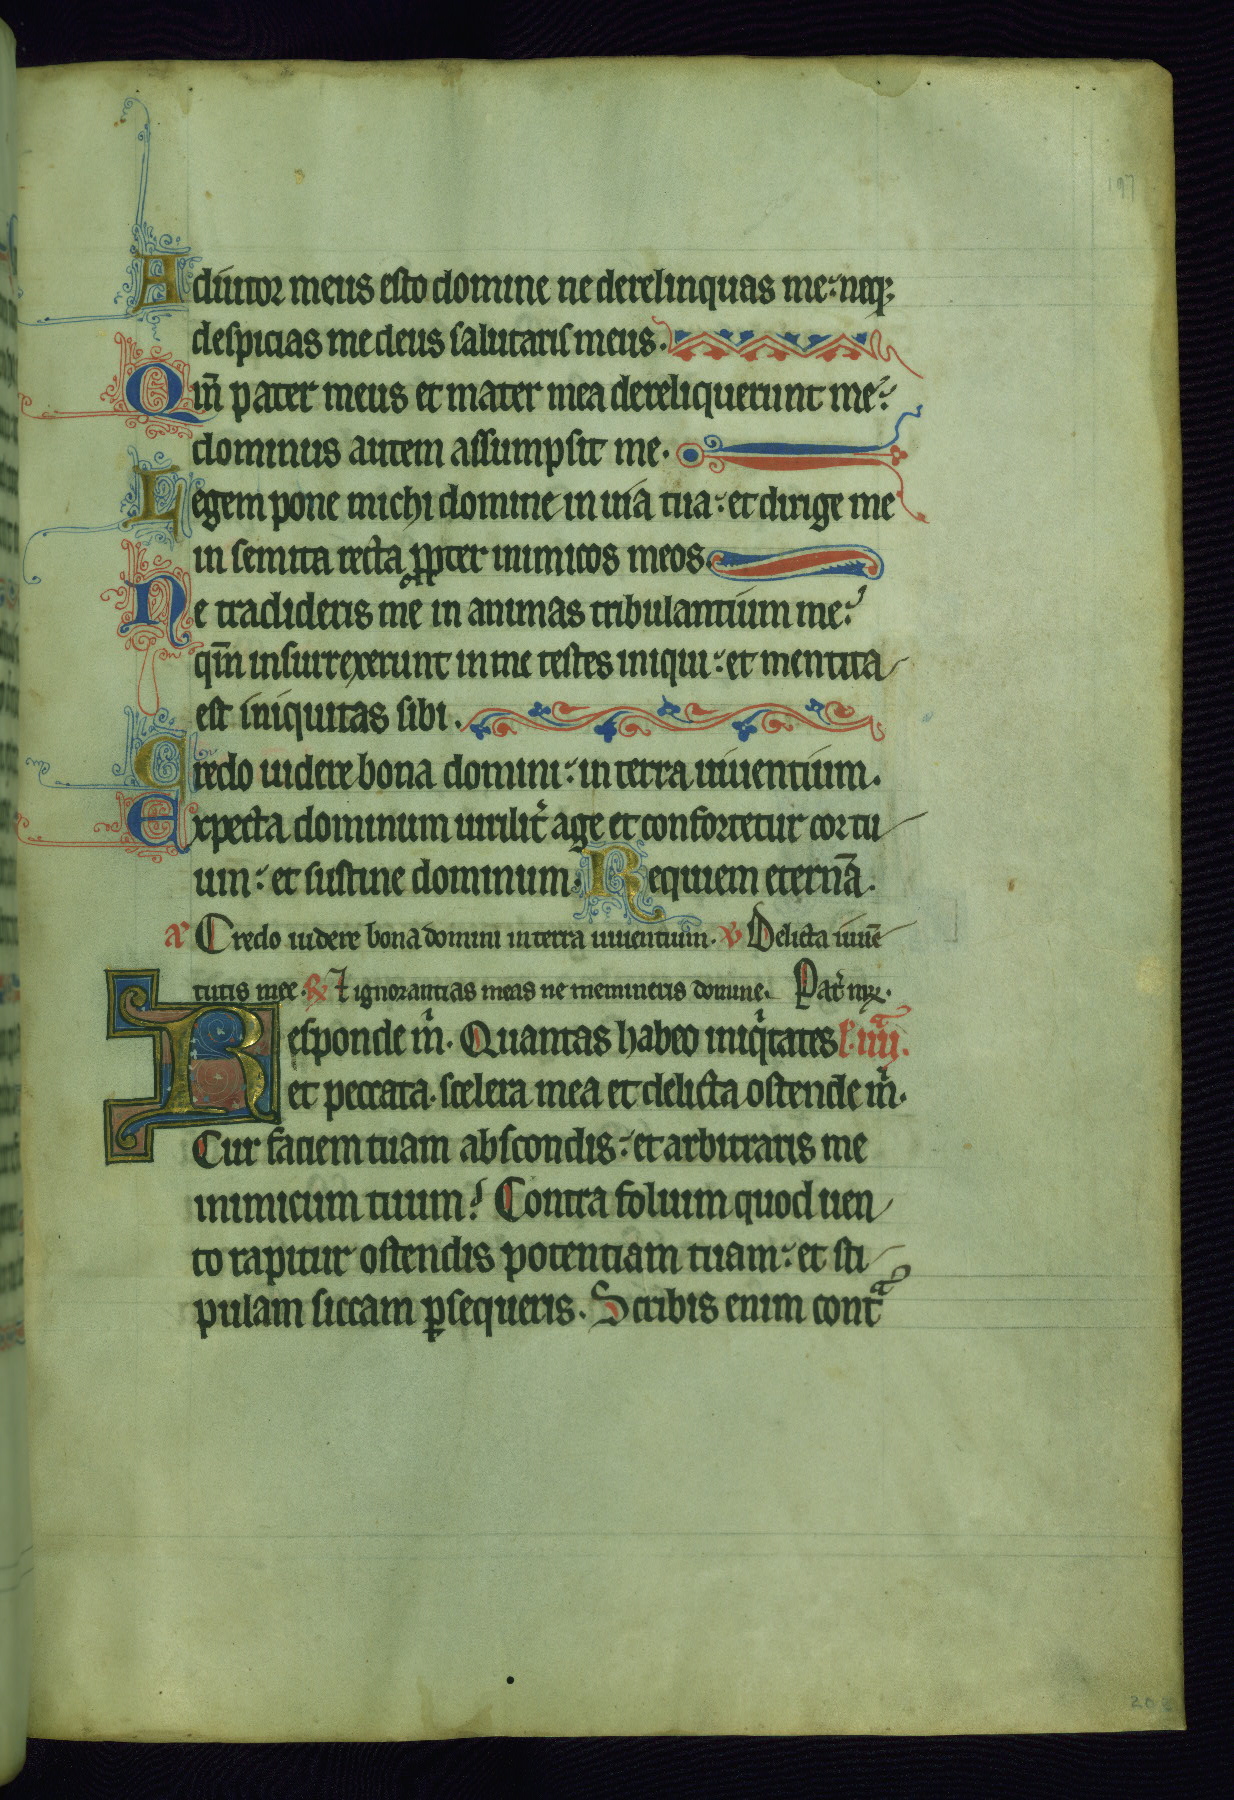 197
Adiutor meus esto domine ne derelinquas me: neq;
despicias me deus salutaris meus.
Qm̄ pater meus et mater mea dereliquerunt me:
dominus autem assumpsit me.
Legem pone michi domine in uia tua: et dirige me
in semita recta p̱p̱ter inimicos meos
Ne tradideris me in animas tribulantium me:
qm̄ insurrexerunt in me testes iniqui: et mentita
est iniquitas sibi.
Credo uidere bona domini: in terra uiuentium.
Expecta dominum uirilit᷑ age et confortetur cor tu
um: et sustine dominum. Requiem eternā.
a᷑ Credo uidere bona domini in terra uiuentium. v Delicta iuuē
tutis mee. ℟ ⁊ ignorantias meas ne memineris domine. Pat᷑ nr̄.
Responde m̥ͥ. Quantas habeo iniqͥtates l. iiijᵃ.
et peccata. scelera mea et delicta ostende mͥ.
Cur faciem tuam abscondis: et arbitraris me
inimicum tuum? Contra folium quod uen
to rapitur ostendis potentiam tuam: et sti
pulam siccam ꝑsequeris. Scribis enim contᵃ